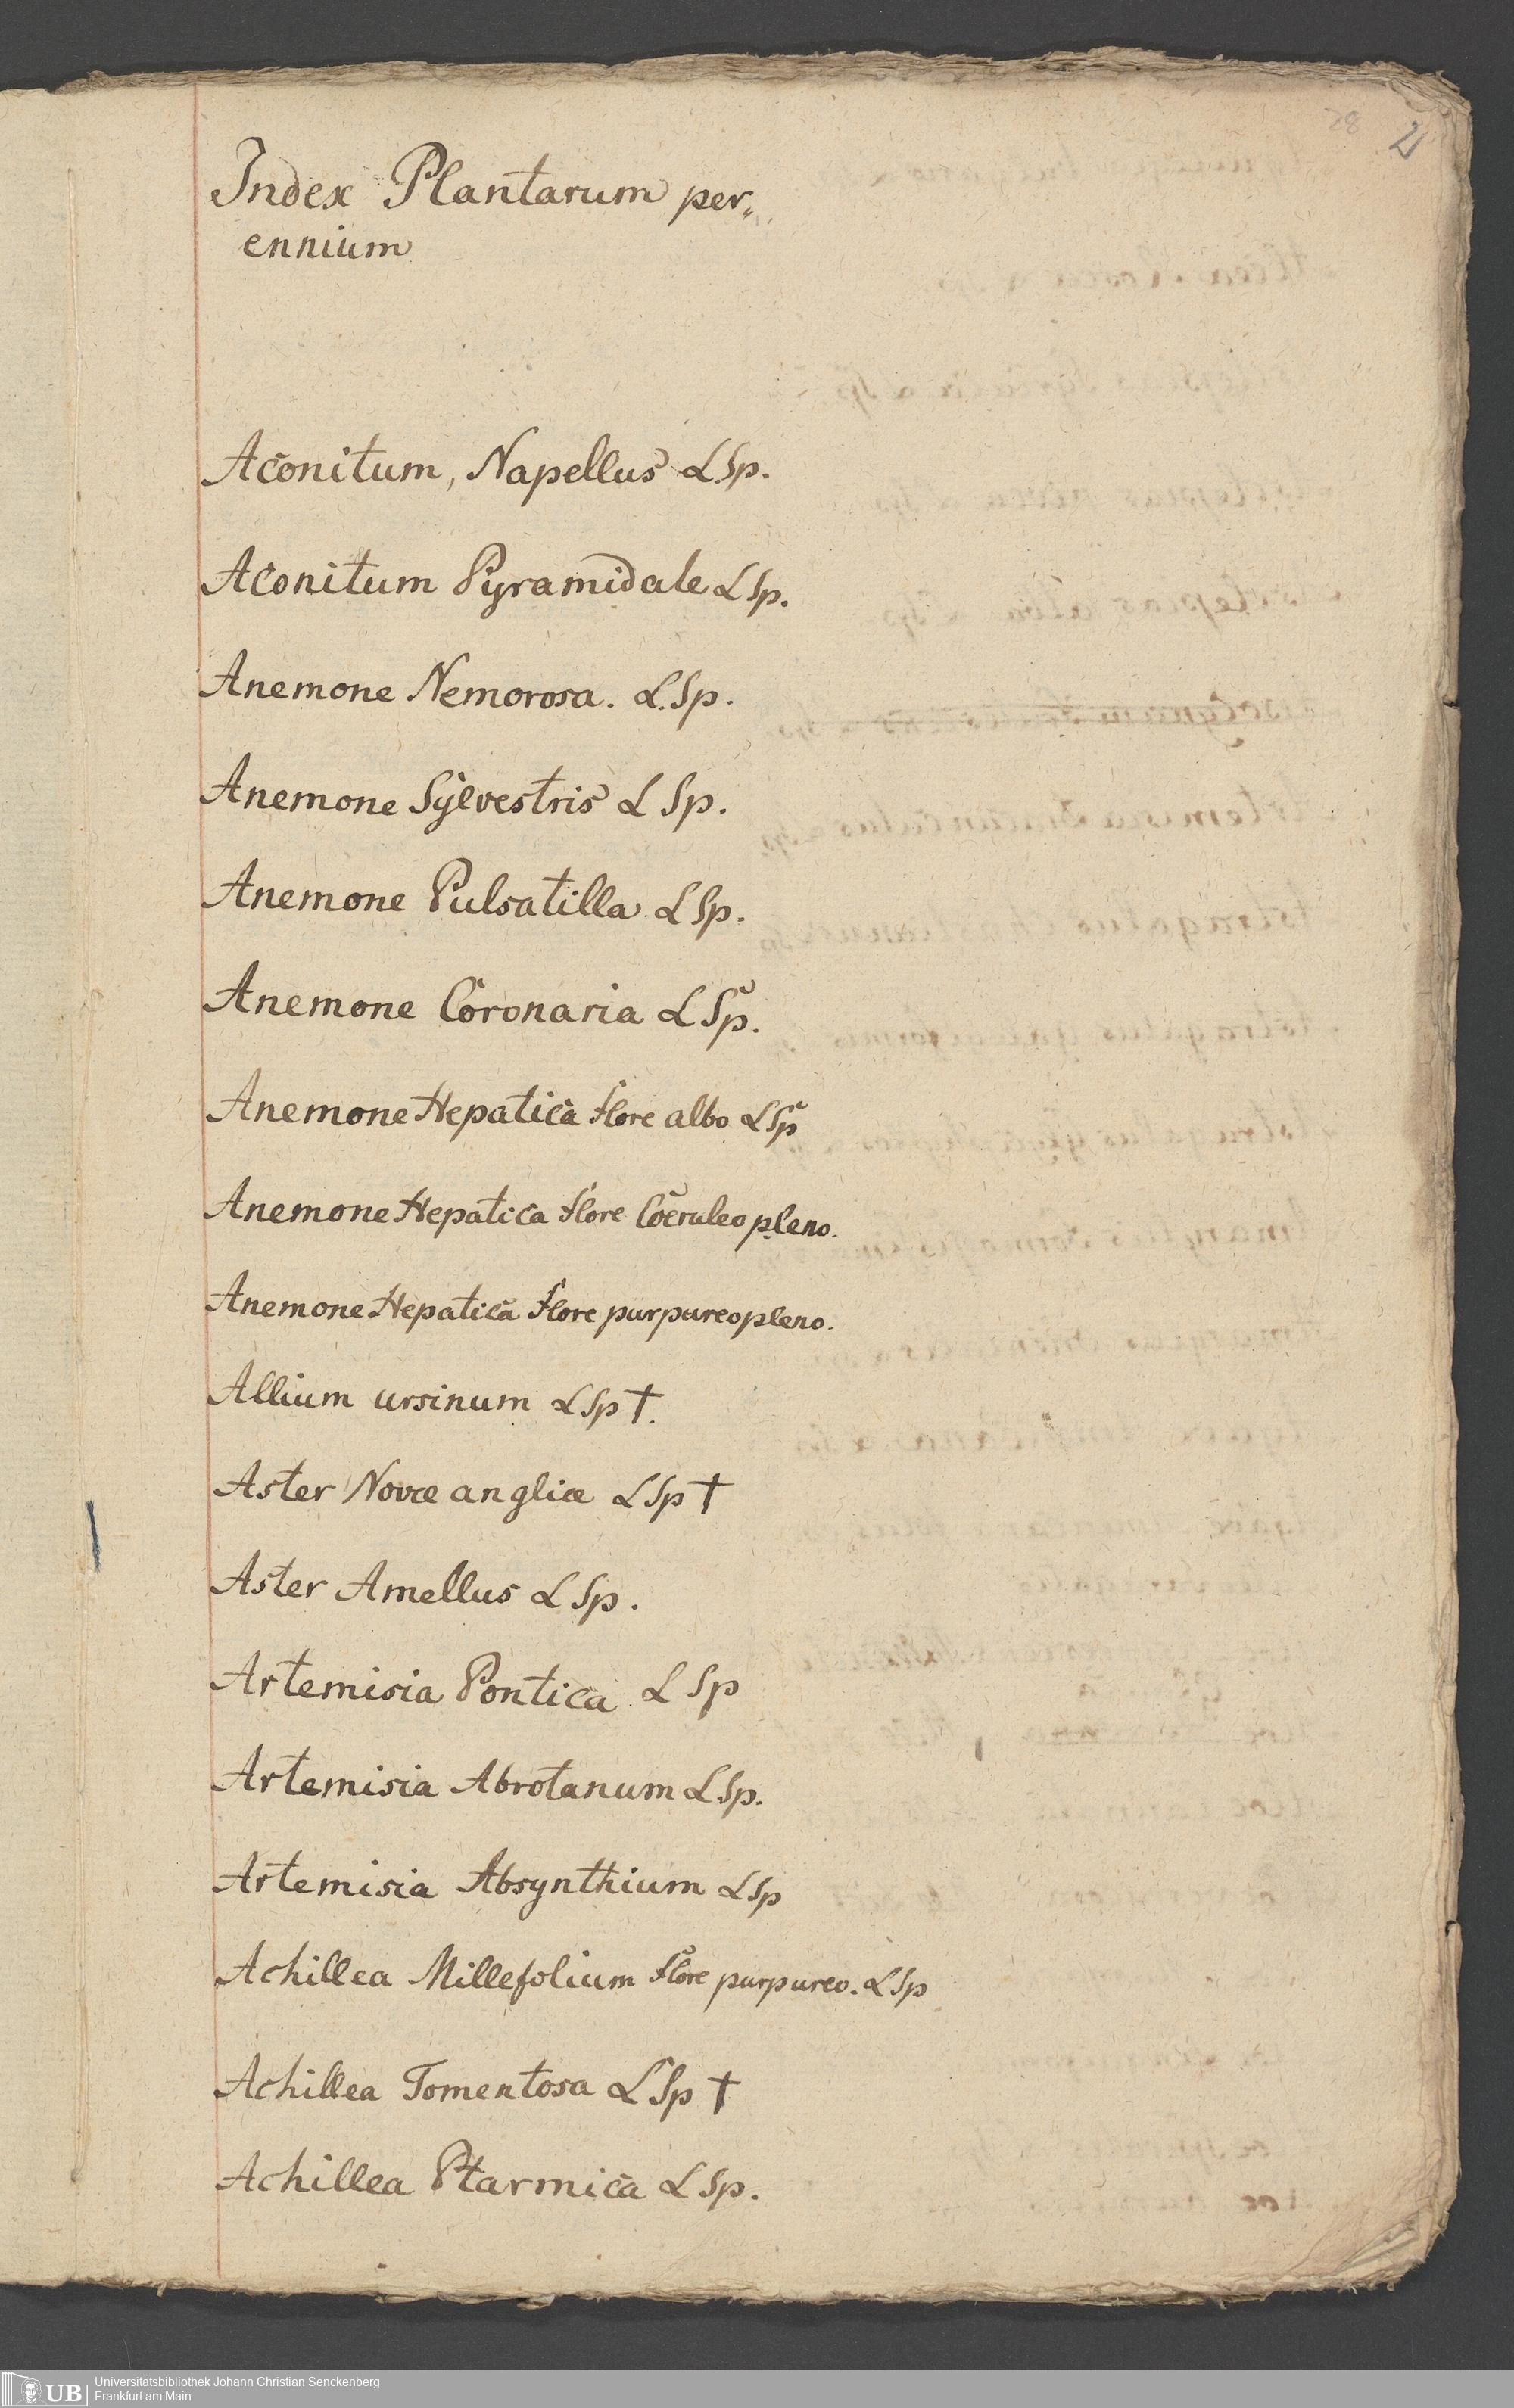 28 2
Index Plantarum per„
ennium
Aconitum, Napellus L.Sp.
Aconitum Pyramidale L Sp.
Anemone Nemorosa. L.Sp.
Anemone Sylvestris L Sp.
Anemone Pulsatilla L Sp.
Anemone Coronaria L Sp.
Anemone Hepatica flore albo L Sp
Anemone Hepatica flore Coeruleo pleno.
Anemone Hepatica flore purpureo pleno.
Allium ursinum L Sp †.
Aster Novæ angliæ L Sp †
Aster Amellus L Sp.
Artemisia Pontica L Sp
Artemisia Abrotanum L Sp.
Artemisia Absynthium L Sp
Achillea Millefolium flore purpureo. L Sp
Achillea Tomentosa L Sp †
Achillea Ptarmica L Sp.
UB Universitätsbibliothek Johann Christian Senckenberg
Frankfurt am Main